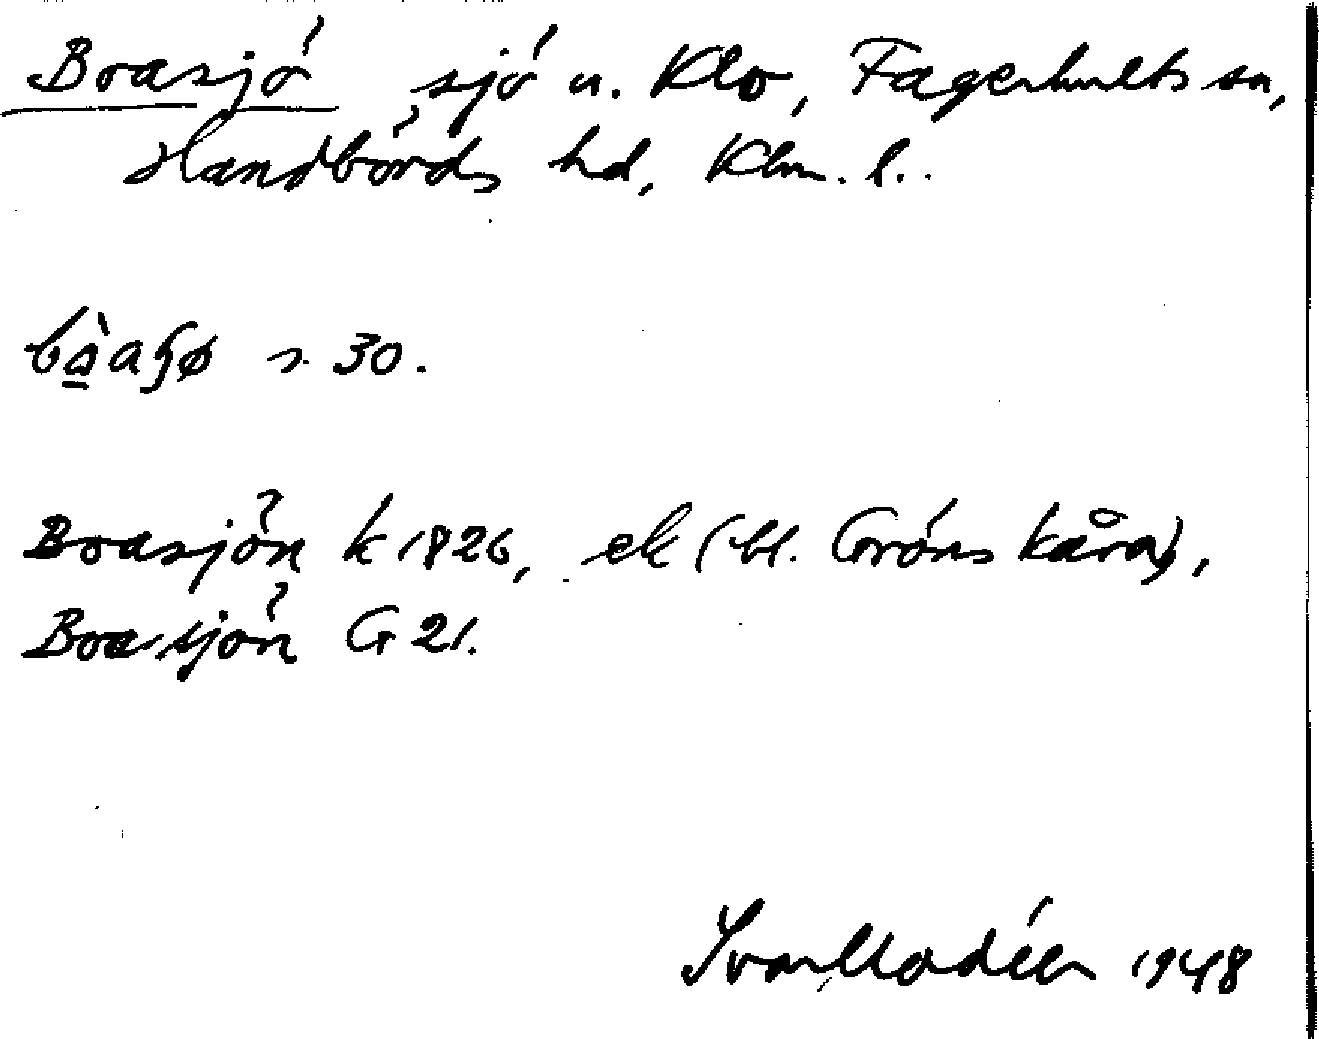 Boasjö sjö u. Klo, Fagerhults sn,
Handbörds hd, Klm. l..
bòaʃø s. 30.
Boasjön k 1826, ek (bl. Grönskåra),
Boasjön G 21.
Ivar Modéer 1948